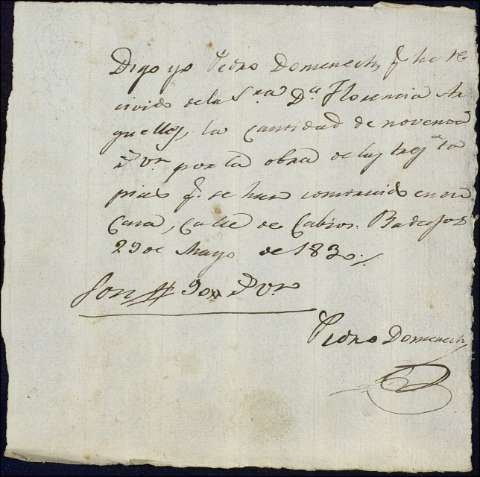 Digo yo Pedro Domenech, q. he re
civido de la S.ra D.a Florencia Ar
guelles, la cantidad de noventa
R.vn por la obra de las tres ta
pias q. se han construido en su
Casa, Calle de Cabros. Badajoz
29 de Mayo de 1830.
Son 90 R Vn
Pedro Domenech